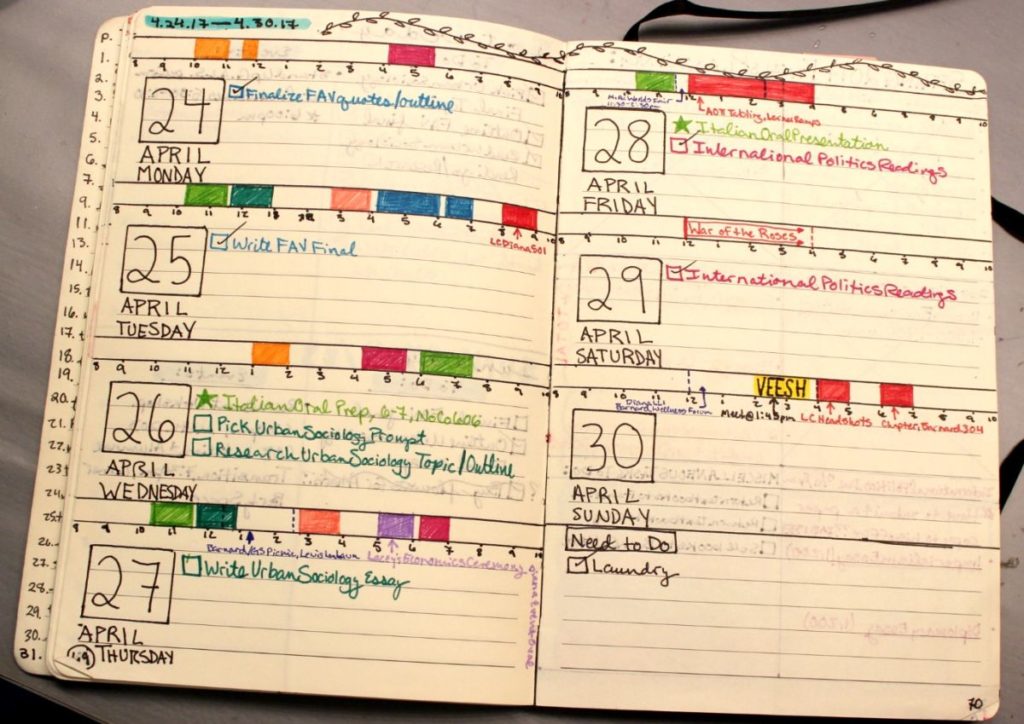 4.24.17 — 4.30.17
P.
1.
2.
3.
4.
5.
6.
7.
9.
11.
13.
15.
16.
17.
18.
19.
20.
21.
22.
23
24.
25.
26.
27.
28.
29.
30.
31.
8 9 10 11 12 1 2 3 4 5 6 7 8 9
24
APRIL
MONDAY
Finalize FAV quotes/outline
8 9 10 11 12 1 3 4 5 6 7 8 9 10
LC Diana 501
25
APRIL
TUESDAY
Write FAV Final
8 9 10 11 12 1 2 3 4 5 6 7 8 9
26
APRIL
WEDNESDAY
★ Italian Oral Prep, 6-7, NoCo 606
Pick Urban Sociology Prompt
Research Urban Sociology Topic/Outline
8 9 10 11 12 1 2 3 4 5 6 7 8 9 10
Lacey's Economics Ceremony
27
APRIL
THURSDAY
Write Urban Sociology Essay
8 9 10 11 12 1 2 3 4 5 6 7 8 9 10
28
APRIL
FRIDAY
★ Italian Oral Presentation
International Politics Readings
8 9 10 11 12 1 2 3 4 5 6 7 8 9 10
War of the Roses
29
APRIL
SATURDAY
International Politics Readings
8 9 10 11 12 1 2 3 4 5 6 7 8 9 10
VEESH
Diana LL1
Meet@1:45pm
LC Headshots
Chapter, Barnard 304
30
APRIL
SUNDAY
Need to Do
Laundry
70